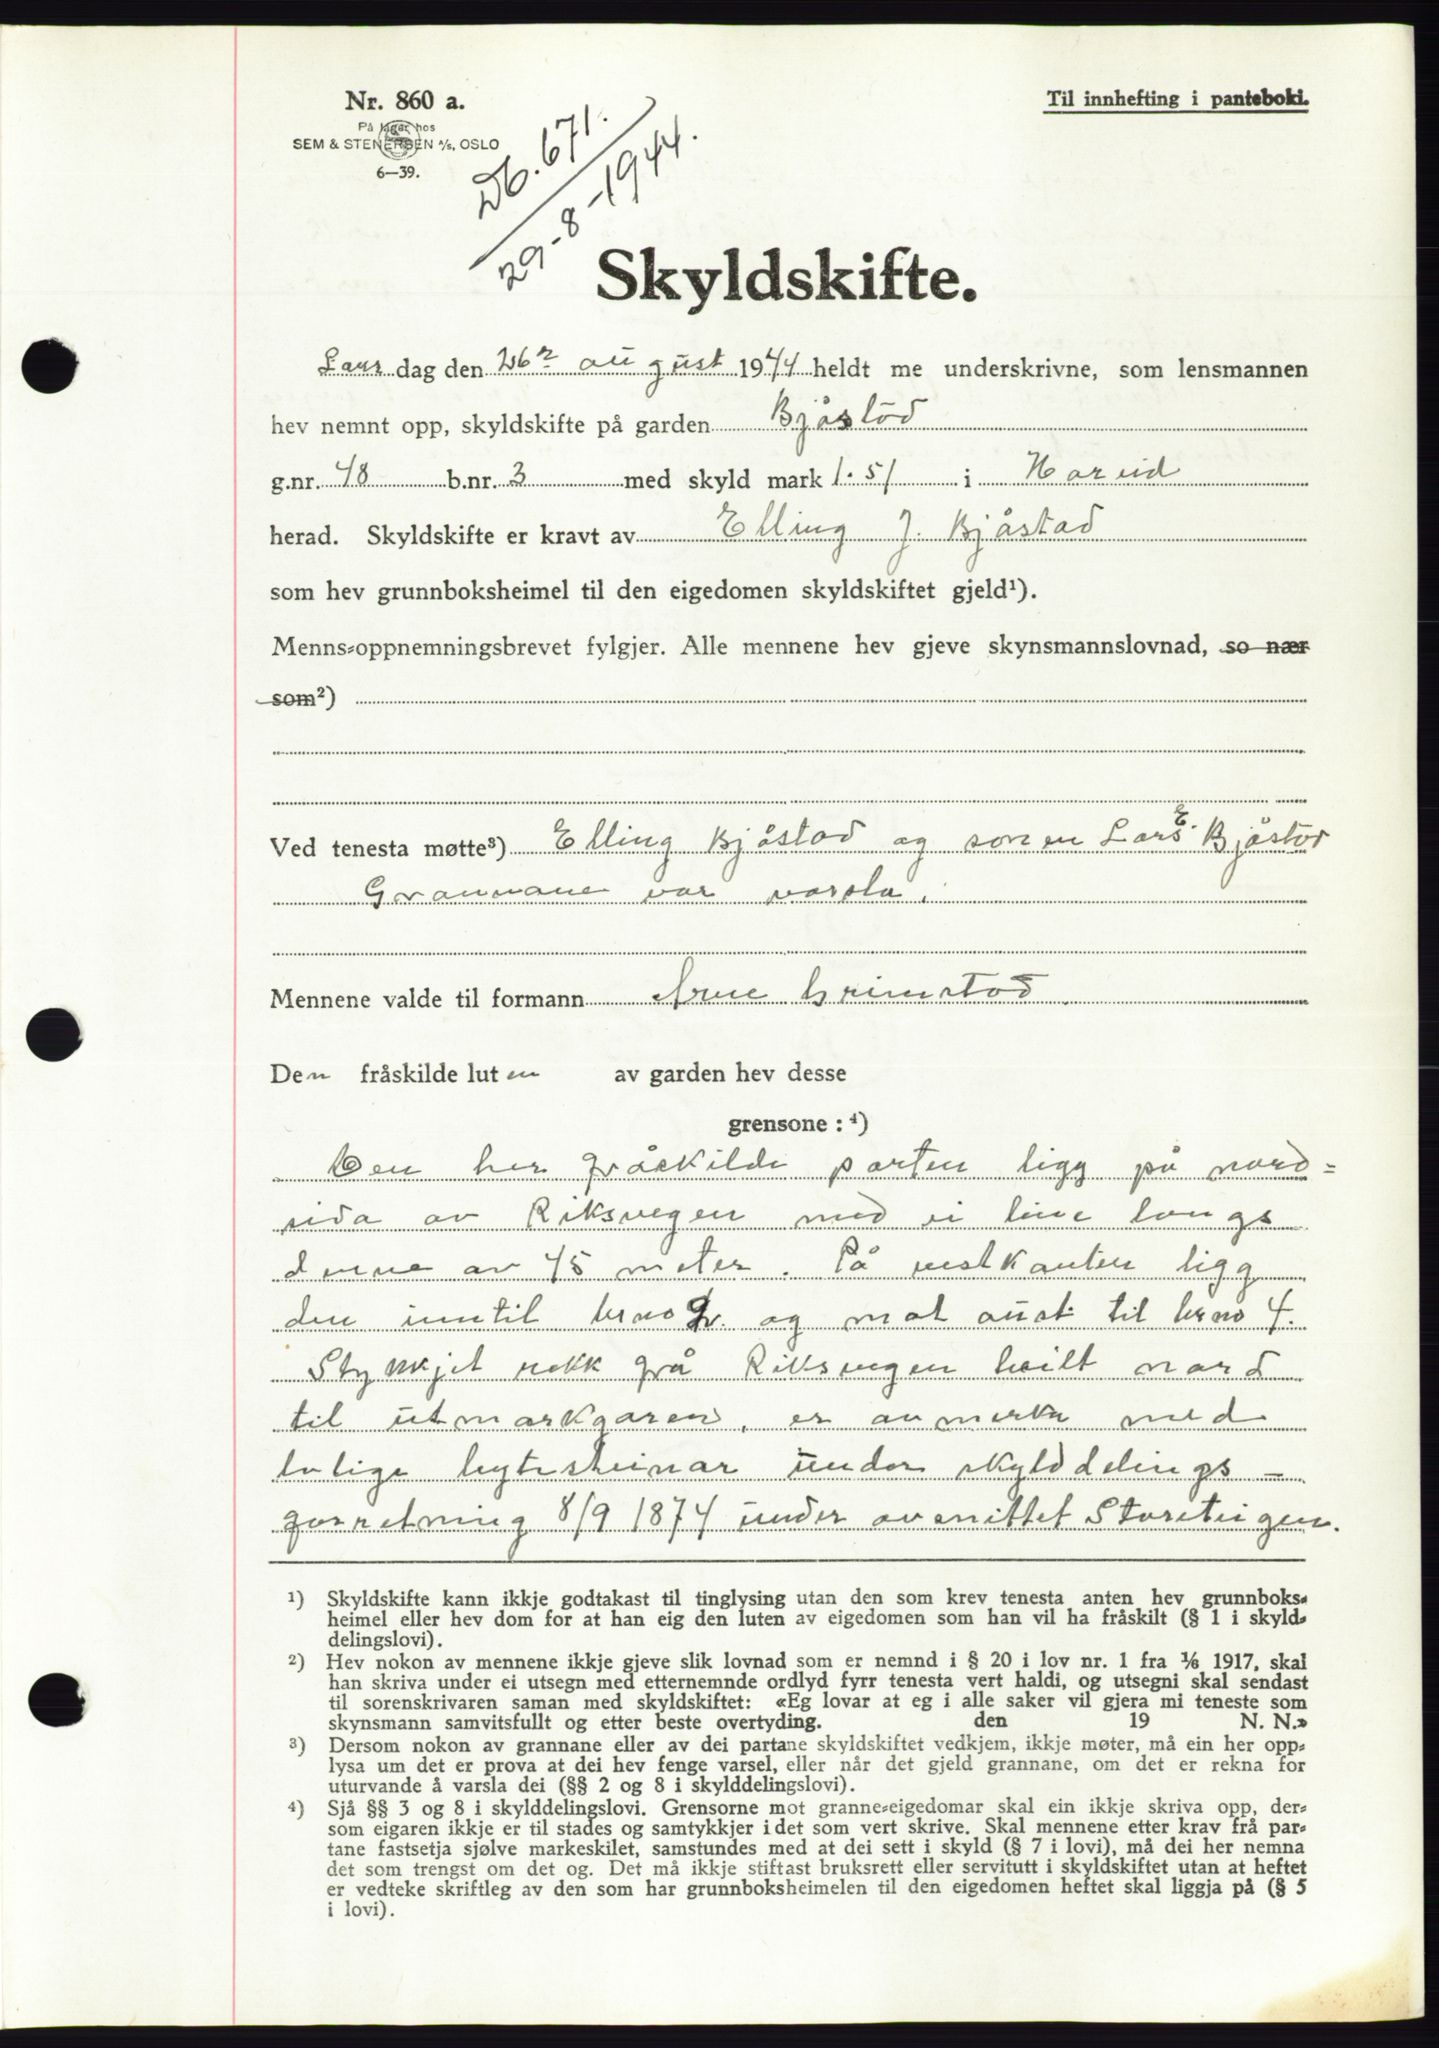 Nr. 860 a.
På lager hos
SEM & STENERSEN A/S, OSLO
6—39.
Til innhefting i panteboki.
Db. 671.
29-8-1944.
Skyldskifte.
Laur dag den 26de august 1944 heldt me underskrivne, som lensmannen
hev nemnt opp, skyldskifte på garden Bjåstad
g.nr. 48 b.nr. 3 med skyld mark 1.51 i Hareid
herad. Skyldskifte er kravt av Elling J. Bjåstad
som hev grunnboksheimel til den eigedomen skyldskiftet gjeld¹).
Menns-oppnemningsbrevet fylgjer. Alle mennene hev gjeve skynsmannslovnad, so nær
som²)
Ved tenesta møtte³) Elling Bjåstad og sonen Lars E. Bjåstad
Grannane var varsla.
Mennene valde til formann Arne Grimstad
Den fråskilde luten av garden hev desse
grensone : ⁴)
Den her fråskilde parten ligg på nord=
sida av Riksvegen med ei line langs
denne av 45 meter. På vestkanten ligg
den inntil brno 2. og mot aust til brno 4.
Stykkjet rekk frå Riksvegen beilt nord
til utmarkgaren, er avmerka med
lovlige bytesteinar under skylddelings-
forretning 8/9 1874 under avsnittet Storeteigen.
¹) Skyldskifte kann ikkje godtakast til tinglysing utan den som krev tenesta anten hev grunnboks-
heimel eller hev dom for at han eig den luten av eigedomen som han vil ha fråskilt (§ 1 i skyld-
delingslovi).
²) Hev nokon av mennene ikkje gjeve slik lovnad som er nemnd i § 20 i lov nr. 1 fra 1/6 1917, skal
han skriva under ei utsegn med etternemnde ordlyd fyrr tenesta vert haldi, og utsegni skal sendast
til sorenskrivaren saman med skyldskiftet: «Eg lovar at eg i alle saker vil gjera mi teneste som
skynsmann samvitsfullt og etter beste overtyding. den 19 N. N.»
³) Dersom nokon av grannane eller av dei partane skyldskiftet vedkjem, ikkje møter, må ein her opp-
lysa um det er prova at dei hev fenge varsel, eller når det gjeld grannane, om det er rekna for
uturvande å varsla dei (§§ 2 og 8 i skylddelingslovi).
⁴) Sjå §§ 3 og 8 i skylddelingslovi. Grensorne mot granne-eigedomar skal ein ikkje skriva opp, der-
som eigaren ikkje er til stades og samtykkjer i det som vert skrive. Skal mennene etter krav frå par-
tane fastsetja sjølve markeskilet, samstundes med at dei sett i skyld (§ 7 i lovi), må dei her nemna
det som trengst om det og. Det må ikkje stiftast bruksrett eller servitutt i skyldskiftet utan at heftet
er vedteke skriftleg av den som har grunnboksheimelen til den eigedomen heftet skal liggja på (§ 5
i lovi).